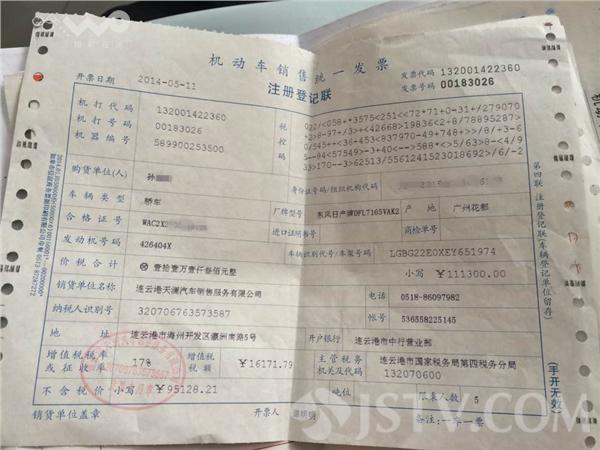 机动车销售统一发票
注册登记联
开票日期 2014-05-11
发票代码 132001422360
发票号码 00183026
机打代码 132001422360
机打号码 00183026
机器编号 589900253500
税控码
购货单位(人) 孙
身份证号码/组织机构代码
车辆类型 轿车
厂牌型号 东风日产牌DFL7165VAK2
产地 广州花都
合格证号 WAC2X
进口证明书号
商检单号
发动机号码 426404X
车辆识别代号/车架号码 LGBG22E0XEY651974
价税合计 ⊗壹拾壹万壹仟叁佰元整
小写 ¥111300.00
销货单位名称 连云港天澜汽车销售服务有限公司
电话 0518-86097982
纳税人识别号 320706763573587
帐号 536558225145
地址 连云港市海州开发区瀛洲南路5号
开户银行 连云港市中行营业部
增值税税率或征收率 17%
增值税税额 ¥16171.79
主管税务机关及代码 连云港市国家税务局第四税务分局
132070600
不含税价 小写 ¥95128.21
吨位
限乘人数 5
销货单位盖章
开票人
备注:一车一票
第四联 注册登记联(车辆登记单位留存)
(手开无效)
JSTV.COM